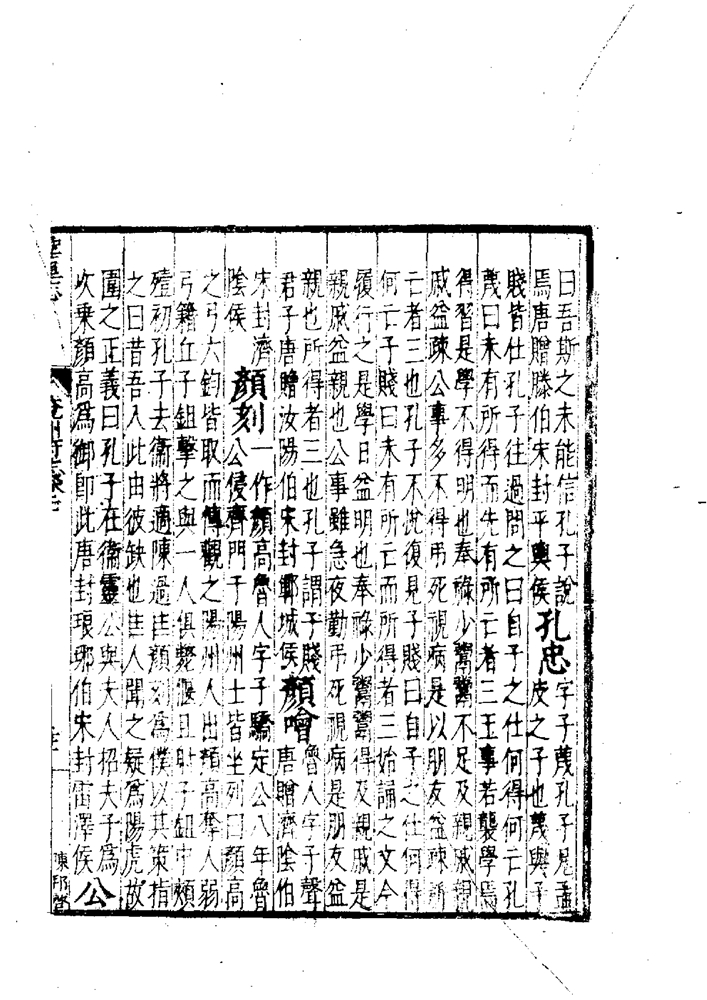 曰吾斯之未能信孔子說孔忠字子蔑孔子兄孟
焉唐贈滕伯宋封平輿侯皮之子也蔑與子
賤皆仕孔子往過問之曰自子之仕何得何亡孔
蔑曰未有所得而先有所亡者三王事若襲學焉
得習是學不得明也奉祿少鬻鬻不足及親戚親
戚益疎公事多不得弔死視病是以朋友益疎所
亡者三也孔子不悅復見子賤曰自子之仕何得
何亡子賤曰未有所亡而所得者三始誦之文今
履行之是學日益明也奉祿少鬻鬻得及親戚是
親戚益親也公事雖急夜勤弔死視病是朋友益
親也所得者三也孔子謂子賤顏噲魯人字子聲
君子唐贈汝陽伯宋封鄆城侯唐贈濟陰伯
宋封濟顏刻一作顏高魯人字子驕定公八年魯
陰侯公侵齊門于陽州士皆坐列曰顏高
之弓六鈞皆取而傳觀之陽州人出顏高奪人弱
弓籍丘子鉏擊之與一人俱斃偃且射子鉏中頰
殪初孔子去衛將適陳過匡顏刻為僕以其策指
之曰昔吾入此由彼缺也匡人聞之疑為陽虎故
圍之正義曰孔子在衛靈公與夫人招夫子為
次乘顏高為御即此唐封琅琊伯宋封雷澤侯公
兗州府志卷
陳邦